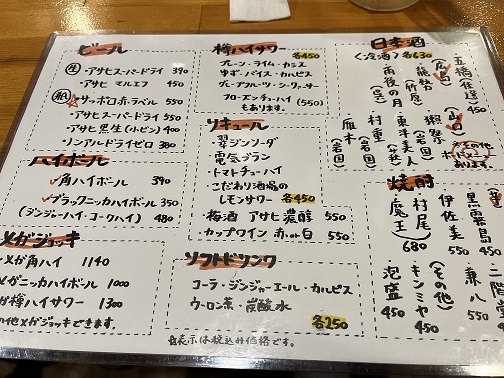 ビール
生 アサヒスーパードライ 390
アサヒ マルエフ 550
瓶 サッポロ赤ラベル 550
アサヒスーパードライ 550
アサヒ黒生(小ビン) 400
ノンアルドライゼロ 380
ハイボール
角ハイボール 390
ブラックニッカハイボール 350
(ジンジャーハイ・コークハイ) 480
メガジョッキ
メガ角ハイ 1140
メガニッカハイボール 1000
メガ樽ハイサワー 1300
の他メガジョッキできます。
樽ハイサワー 各450
プレーン・ライム・カシス
ゆず・バイス・カルピス
グレープフルーツ・シークヮーサー
フローズンチューハイ (550)
もあります。
リキュール
翠ジンソーダ
電気ブラン
トマトチューハイ
こだわり酒場の
レモンサワー 各450
梅酒 アサヒ濃醇 550
カップワイン 赤or白 550
ソフトドリンク
コーラ・ジンジャーエール・カルピス
ウーロン茶・炭酸水
各250
日本酒
〈冷酒〉 各630
五橋(往還) 450
(広島)
龍勢
竹原
雨後の月
(山口)
獺祭
東洋美人(萩)
村重(岩国)
雁木(岩国)
その他
本日メニュー
あります。
焼酎
二階堂
兼八 550
黒霧島 450
伊佐美 550
(その他)
キンミヤ 450
村尾
魔王 680
泡盛 450
☆表示は税込み価格です。